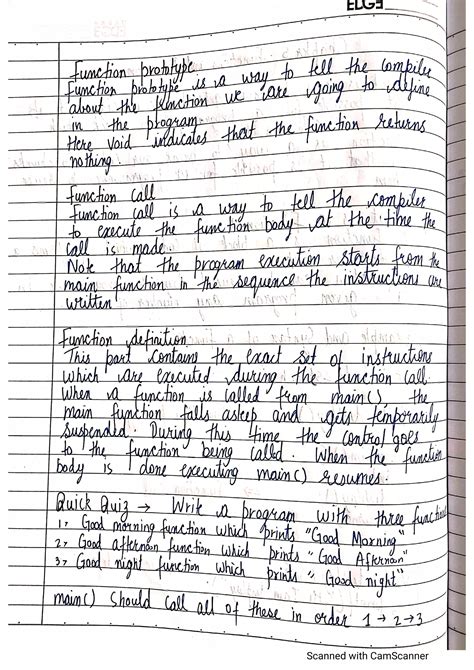 ELGE
Function prototype
Function prototype is a way to tell the compiler
about the function we are going to define
in the program.
Here void indicates that the function returns
nothing.
Function call
Function call is a way to tell the compiler
to execute the function body at the time the
call is made.
Note that the program execution starts from the
main function in the sequence the instructions are
written
Function definition
This part contains the exact set of instructions
which are executed during the function call.
When a function is called from main(), the
main function falls asleep and gets temporarily
suspended. During this time the control goes
to the function being called. When the function
body is done executing main() resumes.
Quick Quiz → Write a program with three functions
1, Good morning function which prints "Good Morning"
2, Good afternoon function which prints "Good Afternoon"
3, Good night function which prints "Good night"
main() should call all of these in order 1 → 2 → 3
Scanned with CamScanner